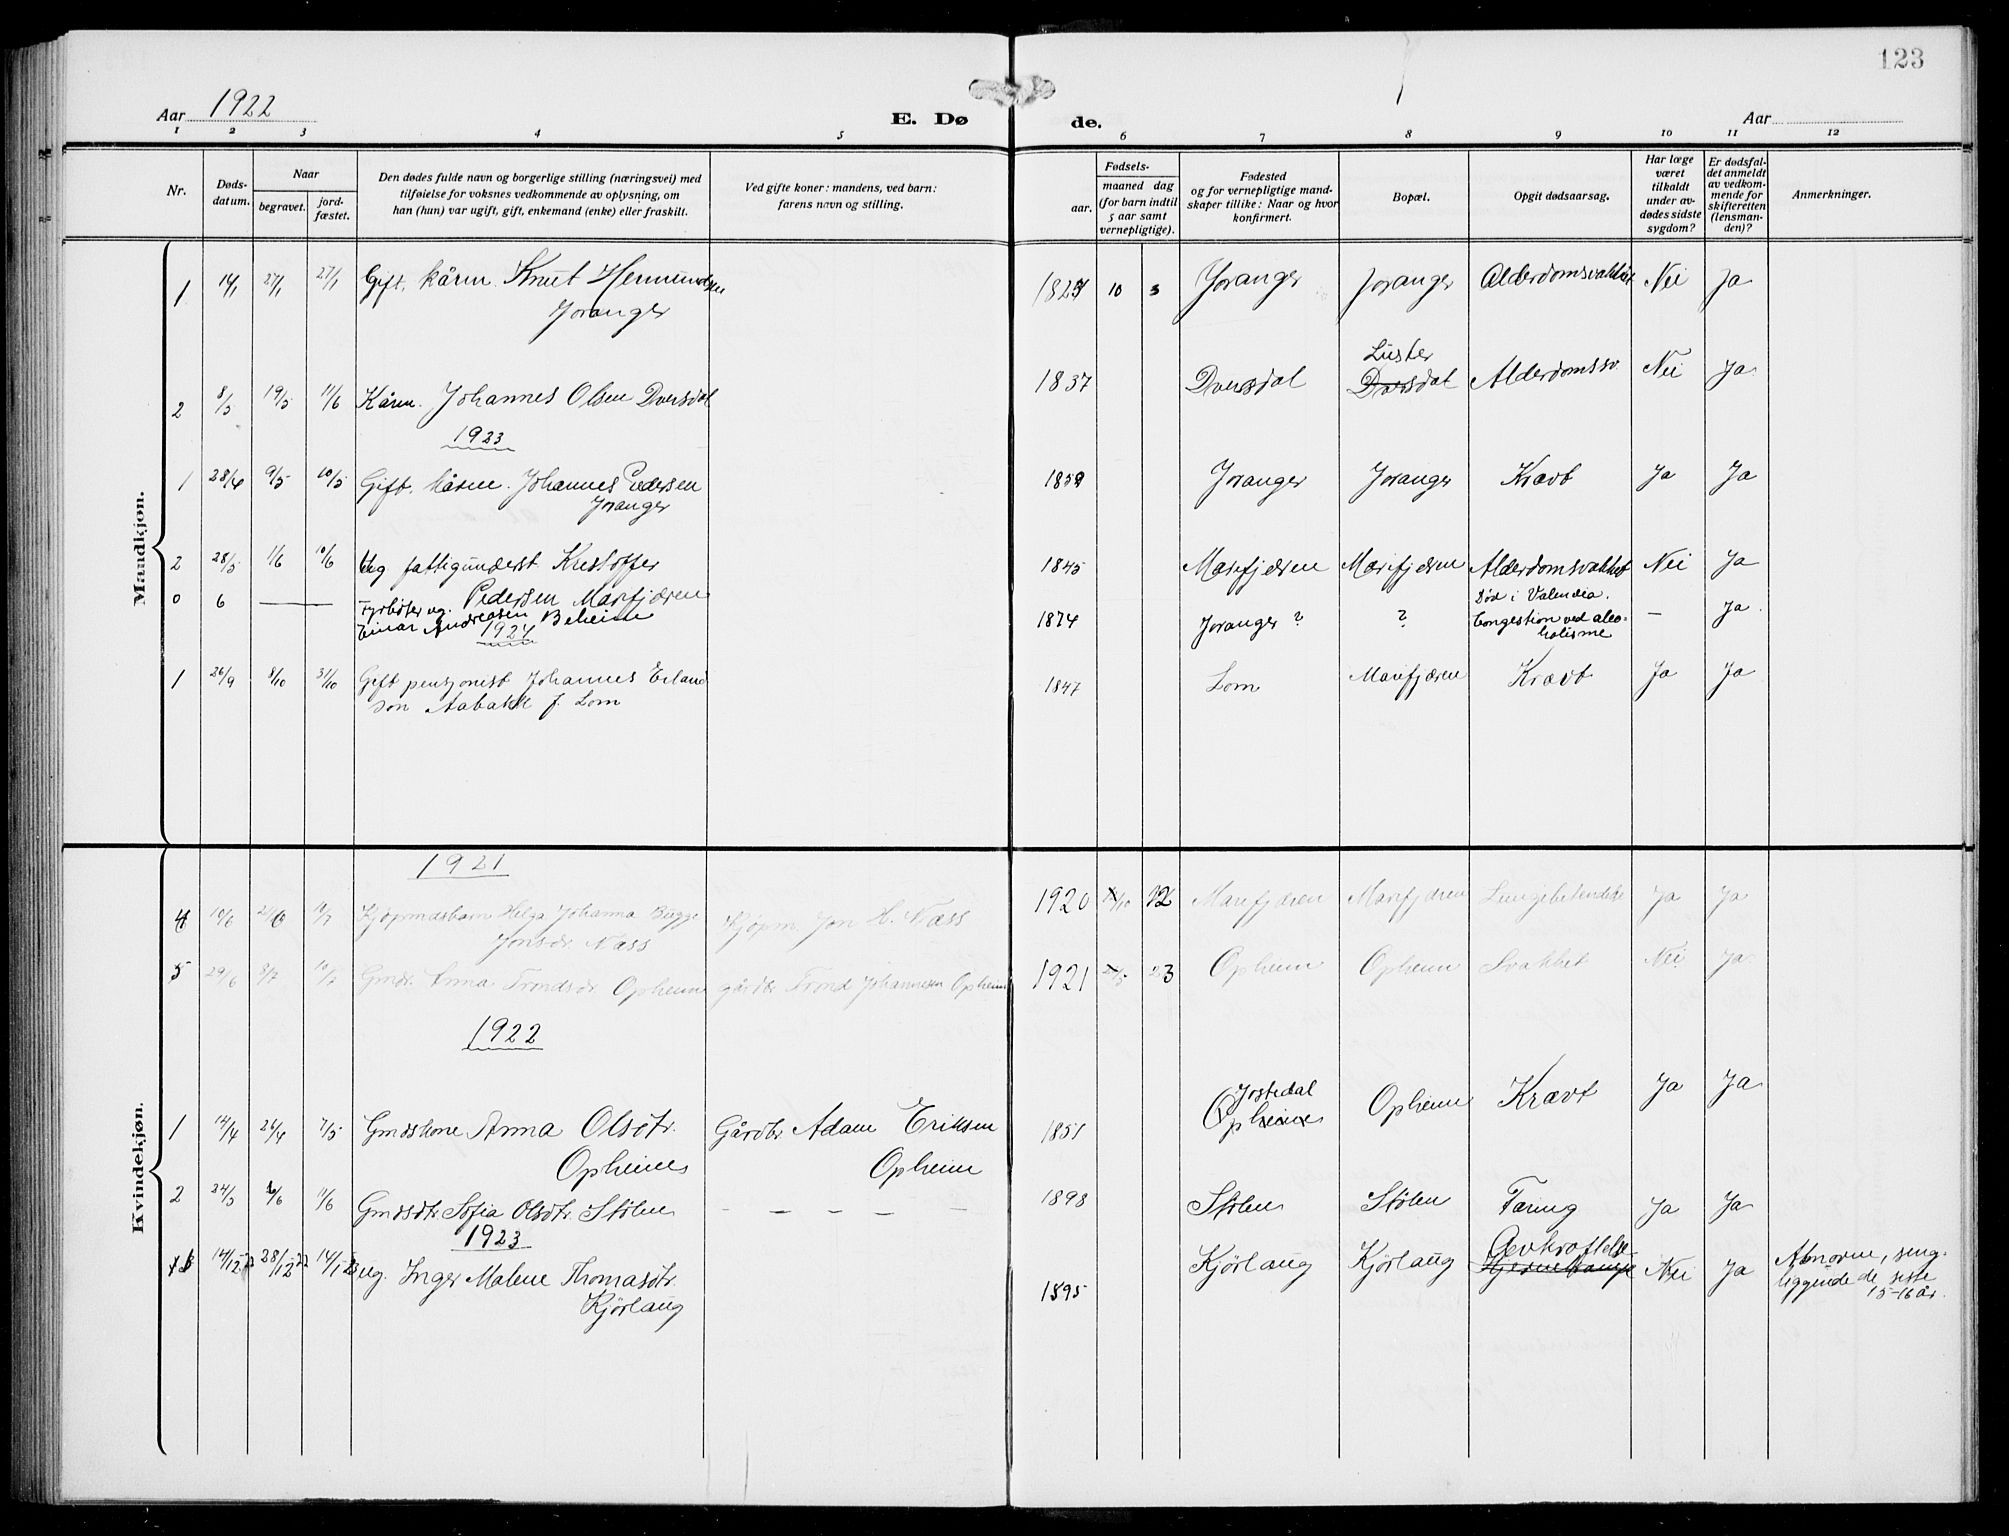 123
Aar 1922
E. Dø
de.
Aar
1 2 3 4 5 6 7 8 9 10 11 12
Nr.
Døds-
datum.
Naar
begravet.
jord-
fæstet.
Den dødes fulde navn og borgerlige stilling (næringsvei) med
tilføielse for voksnes vedkommende av oplysning, om
han (hun) var ugift, gift, enkemand (enke) eller fraskilt.
Ved gifte koner: mandens, ved barn:
farens navn og stilling.
Fødsels-
aar.
maaned dag
(for barn indtil
5 aar samt
vernepligtige).
Fødested
og for vernepligtige mand-
skaper tillike: Naar og hvor
konfirmert.
Bopæl.
Opgit dødsaarsag.
Har læge
været
tilkaldt
under av-
dødes sidste
sygdom?
Er dødsfal-
det anmeldt
av vedkom-
mende for
skifteretten
(lensman-
den)?
Anmerkninger.
Mandkjøn.
1 14/1 27/1 27/1 Gift. kårm. Knut Hermundsen 10 3 Joranger Joranger Alderdomsvakket Nei Ja
Joranger
Luster
2 8/5 19/5 11/6 Kårm. Johannes Olsen Dversdal 1837 Dversdal Dversdal Alderdomssv. Nei Ja
1923
1 28/4 9/5 10/5 Gift. kårm. Johannes Pedersen 1859 Joranger Joranger Kræft Ja Ja
Joranger
2 28/5 1/6 10/6 Ug fattigunderst Kristoffer 1845 Marifjæren Marifjæren Alderdomsvakket Nei Ja
Pedersen Marifjæren
0 6 — Fyrbøter ug. Død i Valencia.
Einar Andreasen Beheim 1874 Joranger ? ? Congestion ved alco- — Ja
holisme
1924
1 26/9 8/10 31/10 Gift pensjonist Johannes Erland 1847 Lom Marifjæren Kræft Ja Ja
son Aabakk f. Lom
Kvindekjøn.
1921
4 Kjøpmdsbarn Helga Johanna Bugge Kjøpm. Jon H. Næss 1920 12 Marifjæren Marifjæren Lungebetendelse Ja Ja
Jonsdr. Næss
5 29/6 8/7 10/7 Gmdr. Anna Trondsdr. Opheim gårdbr Trond Johannesen Opheim 1921 23 Opheim Opheim Svakhet Nei Ja
1922
Jostedal
1 14/4 26/4 7/5 Gmdskone Anna Olsdtr. Gårdbr Adam Eriksen 1851 Opheim Opheim Kræft Ja Ja
Opheim Opheim
2 24/5 6/6 11/6 Gmdsdtr Sofia Olsdtr. Stølen — — — — — 1898 Stølen Stølen Tæring Ja Ja
1923
1 14/12-22 28/12-22 14/1-23 ug. Inger Malene Thomasdtr. 1895 Kjørlaug Kjørlaug Avkræftelse Nei Ja Abnorm, seng-
Kjørlaug liggende de siste
15-16 år.